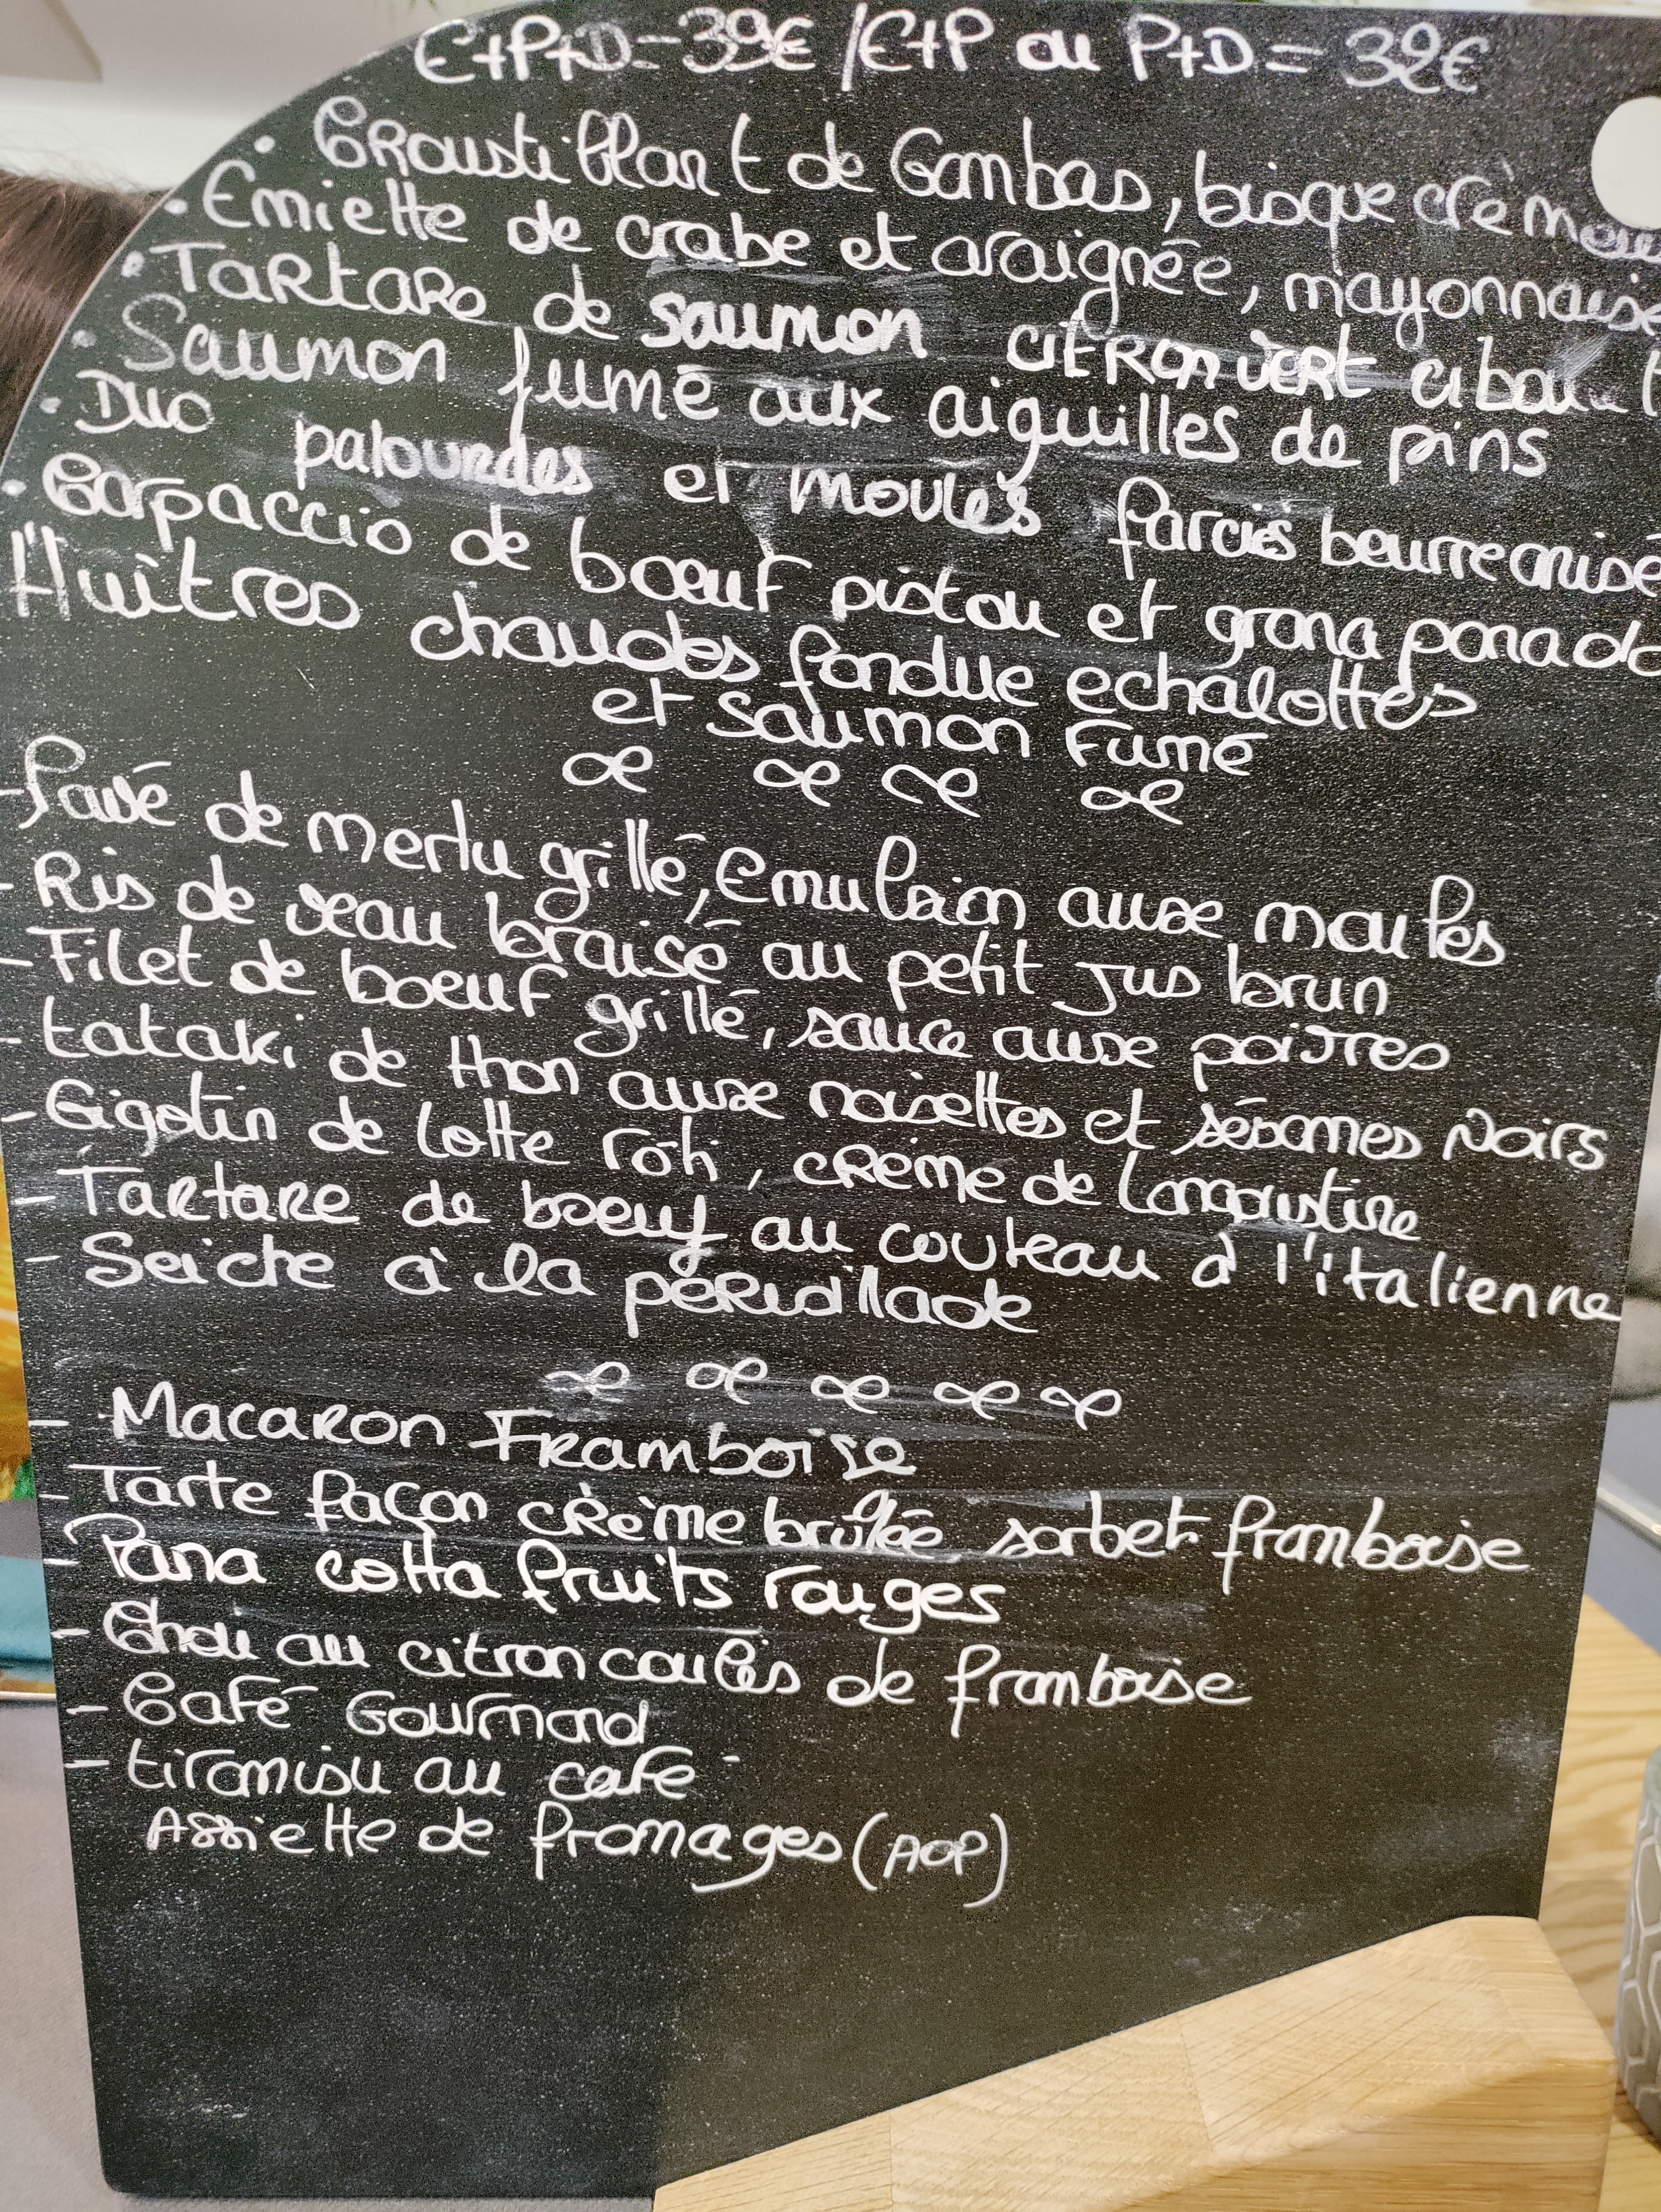 E+P+D=39€ / E+P ou P+D=32€
• Croustillant de Gambas, bisque crèmeuse
• Emiette de crabe et araignée, mayonnaise
• Tartare de saumon citron vert ciboule
• Saumon fumé aux aiguilles de pins
• Duo palourdes et moules farcies beurre anisé
• Carpaccio de boeuf pistou et grana panado
Huîtres chaudes fondue echalottes
et saumon fumé
- Pavé de merlu grillé, Emulsion aux moules
- Ris de veau braisé au petit jus brun
- Filet de boeuf grillé, sauce aux poivres
- tataki de thon aux noisettes et sésames Noirs
- Gigotin de Lotte rôti, crème de Langoustine
- Tartare de boeuf au couteau à l'italienne
- Seiche à la persillade
- Macaron Framboise
- Tarte façon crème brûlée sorbet framboise
- Pana cotta fruits rouges
- Chou au citron coulis de framboise
- Café Gourmand
- tiramisu au café
Assiette de fromages (AOP)